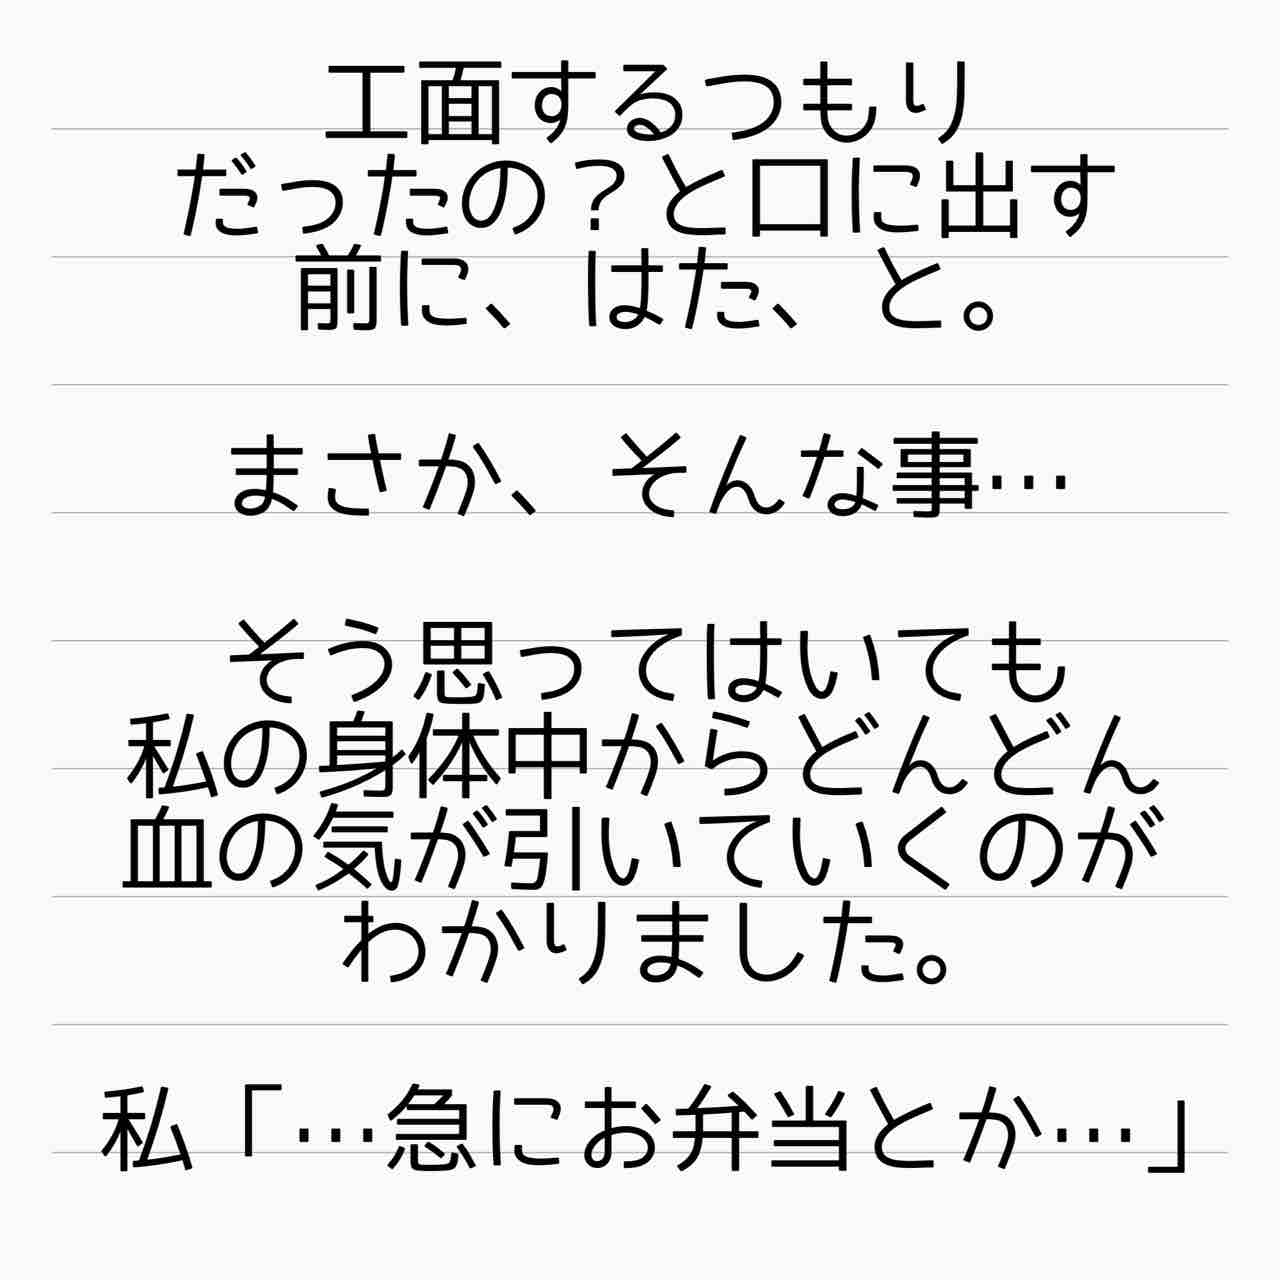 工面するつもり
だったの？と口に出す
前に、はた、と。
まさか、そんな事…
そう思ってはいても
私の身体中からどんどん
血の気が引いていくのが
わかりました。
私「…急にお弁当とか…」